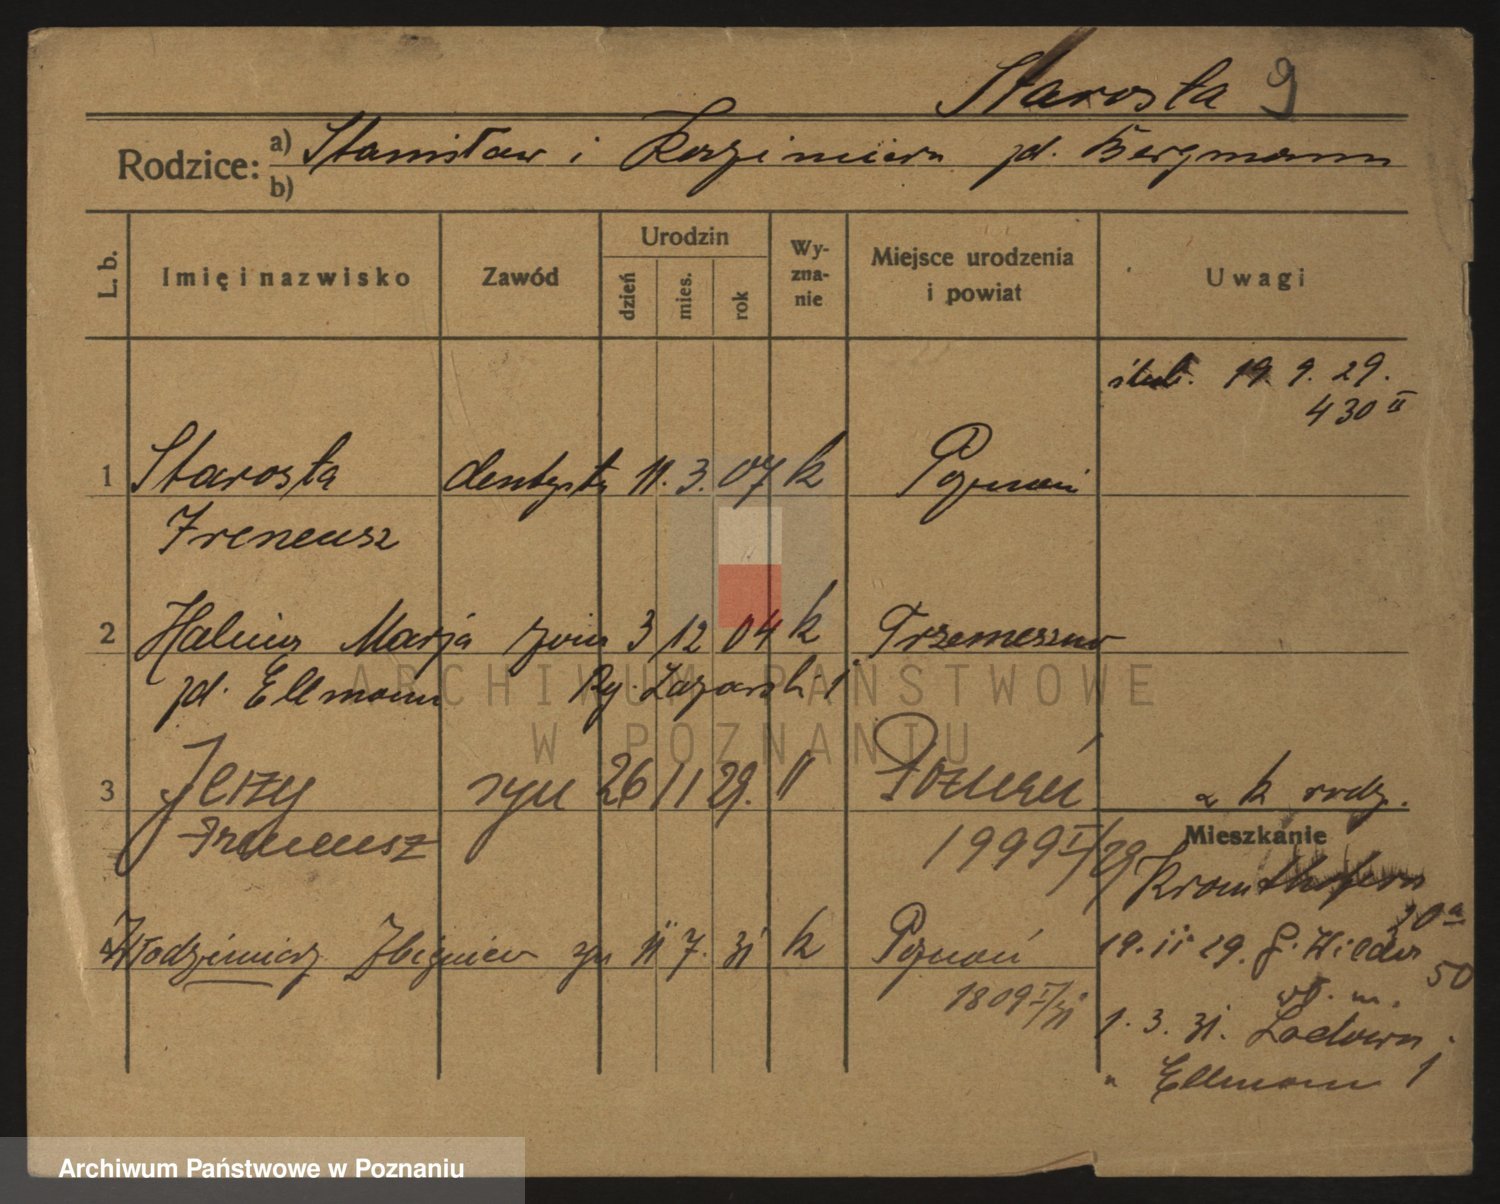 Starosta 9
Rodzice: a) Stanisław i Kazimiera zd. Bergmann
b)
L. b.
Imię i nazwisko
Zawód
Urodzin
dzień
mies.
rok
Wy-
zna-
nie
Miejsce urodzenia
i powiat
Uwagi
ślub. 19. 9. 29.
430 II
1 Starosta dentysta 11. 3. 07 k Poznań
Ireneusz
2 Halina Marja żona 3 12 04 k Trzemeszno
zd. Ellmann Ry. Łazarski 1
3 Jerzy syn 26 11 29. " Poznań k rodz.
Ireneusz 1999 I/29
Mieszkanie
4 Włodzimierz Zbigniew syn 11 7. 31 k Poznań
1809 I/31
20a
19. 11 29. G. Wilda
50
1. 3. 31.
" Ellmann 1
ARCHIWUM PAŃSTWOWE
W POZNANIU
Archiwum Państwowe w Poznaniu